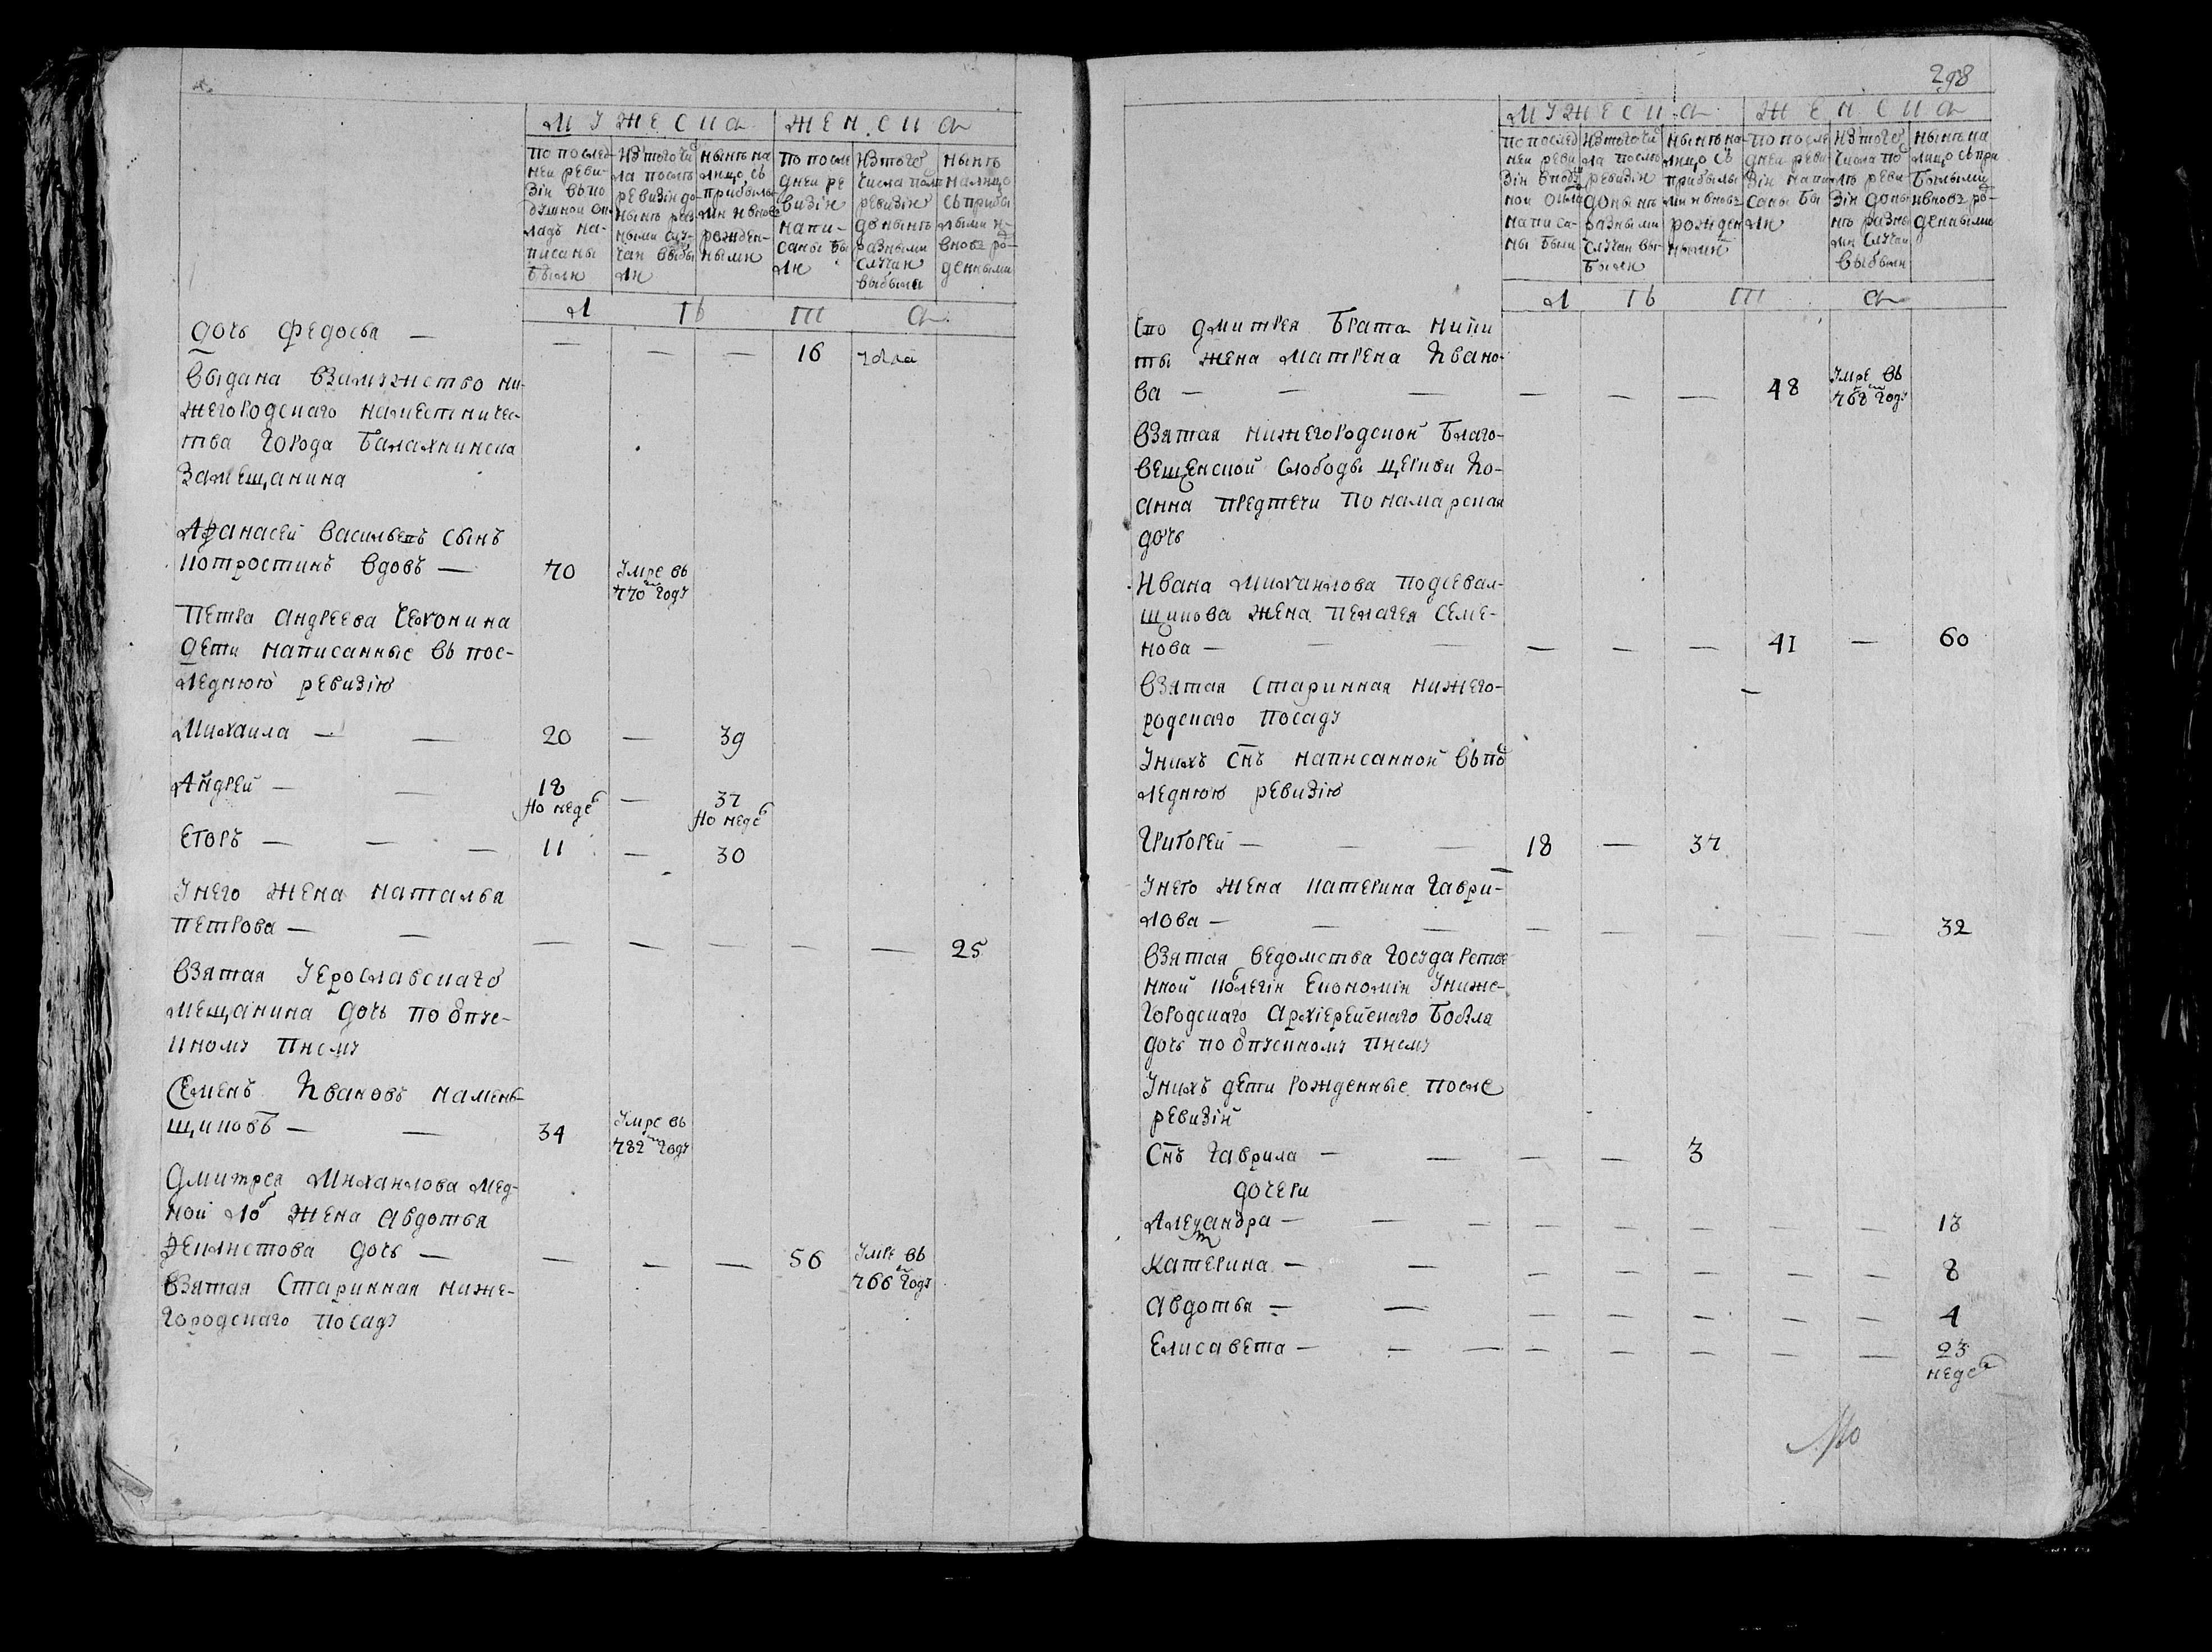 МУЖЕСКА ЖЕНСКА
по послед-
ней реви-
зіи въ по
душной ок-
ладъ на-
писаны
были
Изтого чис
ла послѣ
ревизіи до-
нынѣ раз
ными слу-
чаи выбы
ли
нынѣ на
лицо съ
прибылы-
ми и вновь
рожден-
ными
По после
дней ре
визіи
напи-
саны бы
ли
Изтого
числа посл
ревизіи
донынѣ
разными
случаи
выбыли
нынѣ
налицо
съ прибы
лыми и
вновь ро-
денными
Л Ѣ Т А
дочь Федосья — — — — 16
выдана взамужство ни-
жегородскаго наместничес-
тва города Балахнинска
замещанина
Афанасей Васильевъ сынъ
Котростинъ вдовъ — 70 Умре въ
770м году
Петра Андреева Чеконина
дети написанные въ пос-
леднюю ревизію
Михаила — — 20 — 39
Андрей — — 18 — 37
по неде по неде
Егоръ — — — 11 — 30
Унего жена Наталья
Петрова — — — — — — — 25
взятая Уерославскаго
мещанина дочь по отпус-
кному писму
Семенъ Ивановъ Камень-
щиковъ — — 34 Умре въ
782м году
Дмитрея Михаилова Мед-
ной Лоб жена Авдотья
Феклистова дочь — — — — 56 Умре въ
766м году
Взятая старинная ниже-
городскаго посаду
298
МУЖЕСКА ЖЕНСКА
По послед
ней реви
зіи въ поду
ной окла
написа-
ны были
Изтого чис
ла послѣ
ревизіи
донынѣ
разными
случаи вы-
были
нынѣ на-
лицо съ
прибылы
ми и вновь
рожден
ными
по после
дней реви
зіи напи
саны бы
ли
Изтого
числа по
лѣ реви
зіи доны
нѣ разны
ми случаи
выбыли
нынѣ на
лицо съ при
былыми
ивновь ро-
денными
Л Ѣ Т А
Его Дмитрея брата Ники
ты жена Матрена Ивано-
ва — — — — — — 48 Умре въ
768м году
Взятая нижегородской Благо-
вещенской слободы церкви Ио-
анна Предтечи понамарская
дочь
Ивана Михаилова Подсевал-
щикова жена Пелагея Семе-
нова — — — — — — 41 — 60
Взятая старинная нижего-
родскаго посаду
Унихъ снъ написанной въ пос
леднюю ревизію
Григорей — — — 18 — 37
Унего жена Катерина Гаври-
лова — — — — — — — — 32
Взятая ведомства государстве
нной колегіи экономіи Униже-
городскаго Архіерейскаго бобыля
дочь по отпускному писму
Унихъ дети рожденные после
ревизіи
Снъ Гаврила — — — — 3
дочери
Александра — — — — — — — — 13
Катерина — — — — — — — 8
Авдотья — — — — — — — 4
Елисавета — — — — — — — — 23
недел